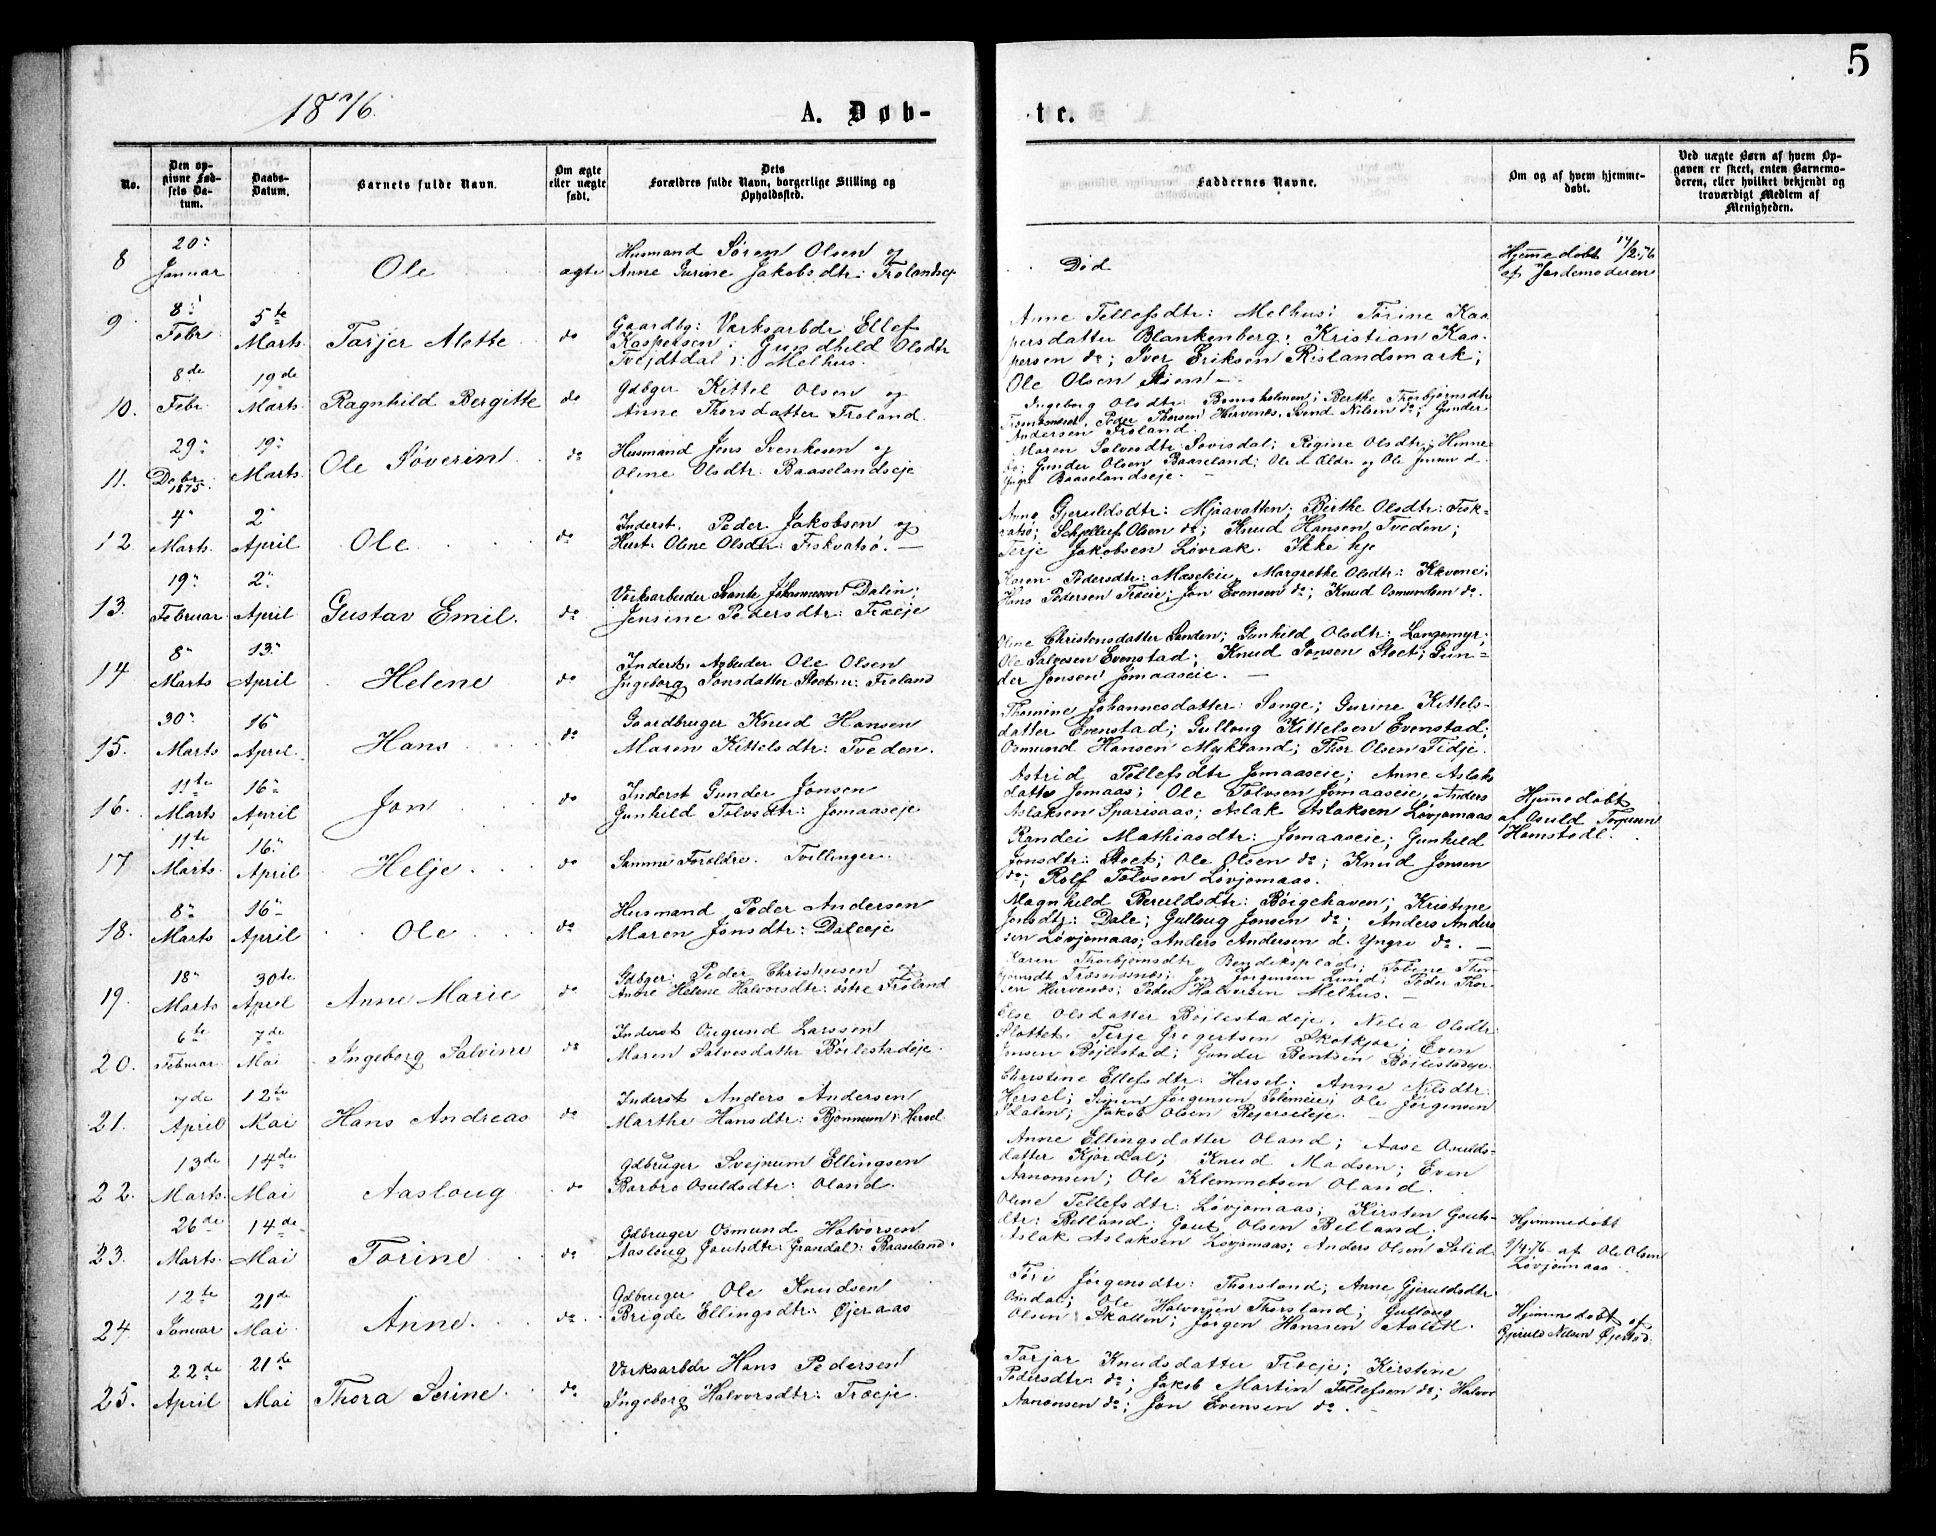 5
1876.
A. Døb-
te.
No.
Den op-
givne Fød-
sels Da-
tum.
Daabs-
Datum.
Barnets fulde Navn.
Om ægte
eller uægte
født.
Dets
Forældres fulde Navn, borgerlige Stilling og
Opholdssted.
Faddernes Navne.
Om og af hvem hjemme-
døbt.
Ved uægte Børn af hvem Op-
gaven er skeet, enten Barnemo-
deren, eller hvilket bekjendt og
troværdigt Medlem af
Menigheden.
8
20
Januar
Ole
ægte
Husmand Søren Olsen og
Anne Gurine Jakobsdtr: Frolandsej
Død
Hjemmedøbt 14/2 76
af Jordemoderen
9
8
Febr
5te
Marts
Tarjer Alette
do
Gaardbg: Værksarbdr: Ellef
Kaspersen; Gundhild Olsdtr
Tvejtdal i Melhus.
Anne Tellefsdtr: Melhus; Torine Kas
persdatter Blankenberg; Kristian Kas-
persen do; Iver Eriksen Rislandsmark;
Ole Olsen Stien
10.
8de
Febr
19de
Marts
Ragnhild Bergitte
do
Gdbger Kittel Olsen og
Anne Thorsdatter Froland
Ingeborg Olsdtr: Bomsholmen; Berthe Thorbjørnsdtr
Peder Thorsen Hurvenes, Svend Nilsen do; Gunder
Andersen Froland.
11.
29
Decbr
1875
19
Marts
Ole Søverin
do
Husmand Jens Svenkesen og
Oline Olsdtr: Baaselandseje
Maren Salvesdtr: Regine Olsdtr: Hinne
do; Gunder Olsen Baaseland; Ole d. Ældre og Ole Jensen d.
Yngre Baaselandseje.
12
4
Marts
2
April
Ole
do
Inderst. Peder Jakobsen og
Hust: Oline Olsdtr: Fiskvatsø.
Anne Gjeruldsdtr: Mjaavatten; Birthe Olsdtr: Fisk-
vatsø; Schjellef Olsen do; Knud Hansen Tveden;
Terje Jakobsen Løvrak. Ikke hje
13.
19
Februar
2
April
Gustav Emil.
do
Værksarbeider Svante Johannesson Dalin;
Jensine Pedersdtr: Træeje
Karen Pedersdtr: Mæseleie Margrethe Olsdtr: Kvene;
Hans Pedersen Træeie; Jon Evensen do; Knud Osmundsen do.
14
8
Marts
13
April
Helene
do
Inderst. Arbeider Ole Olsen
Ingeborg Jonsdatter Stoet n: Froland
Oline Christensdatter Sanden; Gunhild Olsdtr: Langemyr;
Ole Salvesen Evenstad; Knud Jonsen Stoet; Gun-
der Jonsen Jomaaseie.
15.
30
Marts
16
April
Hans
do
Gaardbruger Knud Hansen
Maren Kittelsdtr: Tveden.
Thomine Johannesdatter: Songe; Gurine Kittels-
datter Evenstad; Gulloug Kittelsen Evenstad;
Osmund Hansen Mykland; Thor Olsen Tidje.
16.
11te
Marts
16
April
Jon
do
Inderst Gunder Jonsen
Gunhild Tolvsdtr: Jomaaseje
Astrid Tellefsdtr Jomaaseie; Anne Aslaks
datter Jomaas; Ole Tolvsen Jomaaseie, Anders
Aslaksen Sparisaas; Aslak Aslaksen Løvjomaas
Hjemmedøbt
af Osuld Torjusen
Homstødl.
17
11te
Marts
16
April
Helje
do
Samme Forældre. Tvillinger.
Randei Mathiasdtr: Jomaaseie; Gunhild
Jonsdtr: Stoet; Ole Olsen do; Knud Jonsen
do; Rolf Tolvsen Løvjomaas.
18.
8
Marts
16
April
Ole
do
Husmand Peder Andersen
Maren Jonsdtr: Daleeje
Magnhild Beruldsdtr: Børgehaven; Kristine
Jonsdtr: Dale; Gulloug Jonsen do; Anders Anders
sen Løvjomaas; Anders Andersen d. Yngre do.
19.
18
Marts
30te
April
Anne Marie
do
Gdbger: Peder Christensen og
Andre Helene Halvorsdtr: østre Froland
Karen Thorbjørnsdtr Bendiksplads; Tobine Thor-
Jon Jørgensen Lund; Peder Thor-
sen Hurvenes; Peder Halvorsen Melhus.
20.
6te
Februar
7de
Mai
Ingeborg Salvine
do
Inderst Øugund Larssen
Maren Salvesdatter Bøilestadeje.
Else Olsdatter Bøilestadeje. Nelia Olsdtr
Slottet. Terje Gregertsen Skotkjær; Even
Jensen Bøjlestad; Gunder Bentsen Bøjlestadeje
21.
7de
April
12te
Mai
Hans Andreas
do
Inderst Anders Andersen
Marthe Hansdtr: Bjønnum i: Hersel
Christine Ellefsdtr: Hersel; Anne Nilsdtr:
Hersel; Simen Jørgensen Solemeie; Ole Jørgensen
Dalen; Jakob Olsen Rejerseleje.
22.
13de
Marts
14de
Mai
Aasloug
do
Gdbruger Svejnum Ellingsen
Barbro Osuldsdtr: Oland.
Anne Ellingsdatter Oland; Aase Osulds-
datter Kjørdal; Knud Madsen; Even
Aanonsen; Ole Klemmetsen Oland.
23.
26de
Marts
14de
Mai
Torine
do
Gdbruger Osmund Halvorsen
Aasloug Goutsdtr: Grændal: Baaseland.
Oline Tellefsdtr: Løvjomaas; Kirsten Gouts-
dtr: Belland; Gout Olsen Belland;
Aslak Aslaksen Løvjomaas; Anders Olsen Solid
Hjemmedøbt
9/4 76 af Ole Olsen
Løvjomaas.
24
12te
Januar
21de
Mai
Anne.
do
Gdbruger Ole Knudsen
Brigde Ellingsdtr: Øjeraas
Tori Jørgensdtr: Thorsland; Anne Gjeruldsdtr
Omdal; Ole Halvorsen Thorsland; Gulloug
Olsen Skallen; Jørgen Hanssen Aalek.
Hjemmedøbt af
Gjeruld Nilsen Øjestød.
25.
22de
April
21de
Mai
Thora Serine.
do
Værksarbdr Hans Pedersen
Ingeborg Halvorsdtr: Træeje.
Torjar Knudsdatter Træeje; Kirstine
Pedersdtr: do; Jakob Martin Tellefsen do; Halvor
Aanonsen do; Jon Evensen do.